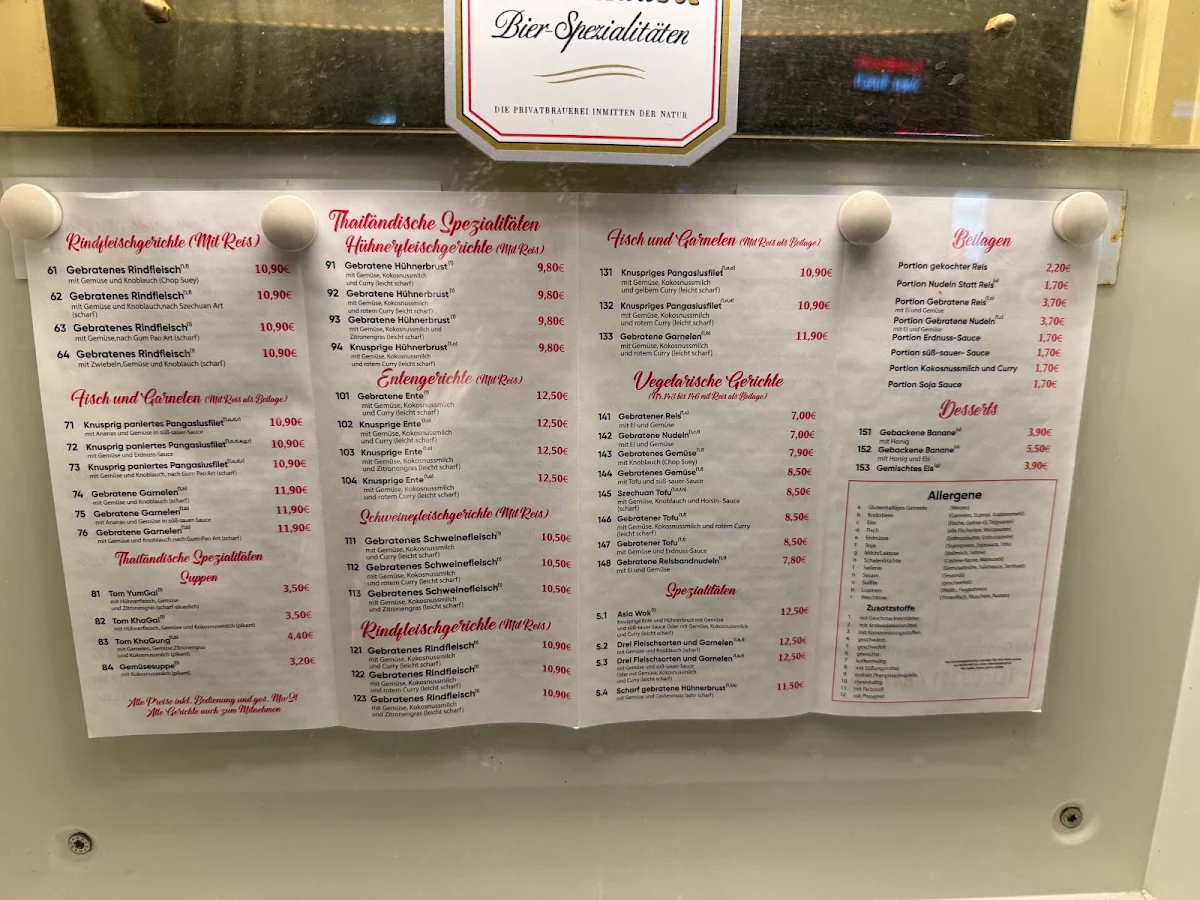 Bier-Spezialitäten
DIE PRIVATBRAUEREI INMITTEN DER NATUR
Rindfleischgerichte (Mit Reis)
61 Gebratenes Rindfleisch 10,90€
mit Gemüse und Knoblauch (Chop Suey)
62 Gebratenes Rindfleisch 10,90€
mit Gemüse und Knoblauch,nach Szechuan Art
(scharf)
63 Gebratenes Rindfleisch 10,90€
mit Gemüse,nach Gum Pao Art (scharf)
64 Gebratenes Rindfleisch 10,90€
mit Zwiebeln,Gemüse und Knoblauch (scharf)
Fisch und Garnelen (Mit Reis als Beilage)
71 Knusprig paniertes Pangasiusfilet 10,90€
mit Ananas und Gemüse in süß-sauer-Sauce
72 Knusprig paniertes Pangasiusfilet 10,90€
mit Gemüse und Erdnuss-Sauce
73 Knusprig paniertes Pangasiusfilet 10,90€
mit Gemüse und Knoblauch, nach Gum Pao Art (scharf)
74 Gebratene Garnelen 11,90€
mit Gemüse und Knoblauch (scharf)
75 Gebratene Garnelen 11,90€
mit Ananas und Gemüse in süß-sauer-Sauce
76 Gebratene Garnelen 11,90€
mit Gemüse und Knoblauch nach Gum Pao Art (scharf)
Thailändische Spezialitäten
Suppen
81 Tom YumGai 3,50€
mit Hühnerfleisch, Gemüse
und Zitronengras (scharf-säuerlich)
82 Tom KhaGai 3,50€
mit Hühnerfleisch, Gemüse und Kokosnussmilch (pikant)
83 Tom KhaGung 4,40€
mit Garnelen, Gemüse,Zitronengras
und Kokosnussmilch (pikant)
84 Gemüsesuppe 3,20€
mit Kokosnussmilch (pikant)
Alle Preise inkl. Bedienung und ges. MwSt
Alle Gerichte auch zum Mitnehmen
Thailändische Spezialitäten
Hühnerfleischgerichte (Mit Reis)
91 Gebratene Hühnerbrust 9,80€
mit Gemüse, Kokosnussmilch
und Curry (leicht scharf)
92 Gebratene Hühnerbrust 9,80€
mit Gemüse, Kokosnussmilch
und rotem Curry (leicht scharf)
93 Gebratene Hühnerbrust 9,80€
mit Gemüse, Kokosnussmilch und
Zitronengras (leicht scharf)
94 Knusprige Hühnerbrust 9,80€
mit Gemüse, Kokosnussmilch
und rotem Curry (leicht scharf)
Entengerichte (Mit Reis)
101 Gebratene Ente 12,50€
mit Gemüse, Kokosnussmilch
und Curry (leicht scharf)
102 Knusprige Ente 12,50€
mit Gemüse, Kokosnussmilch
und Curry (leicht scharf)
103 Knusprige Ente 12,50€
mit Gemüse, Kokosnussmilch
und Zitronengras (leicht scharf)
104 Knusprige Ente 12,50€
mit Gemüse, Kokosnussmilch
und rotem Curry (leicht scharf)
Schweinefleischgerichte (Mit Reis)
111 Gebratenes Schweinefleisch 10,50€
mit Gemüse, Kokosnussmilch
und Curry (leicht scharf)
112 Gebratenes Schweinefleisch 10,50€
mit Gemüse, Kokosnussmilch
und rotem Curry (leicht scharf)
113 Gebratenes Schweinefleisch 10,50€
mit Gemüse, Kokosnussmilch
und Zitronengras (leicht scharf)
Rindfleischgerichte (Mit Reis)
121 Gebratenes Rindfleisch 10,90€
mit Gemüse, Kokosnussmilch
und Curry (leicht scharf)
122 Gebratenes Rindfleisch 10,90€
mit Gemüse, Kokosnussmilch
und rotem Curry (leicht scharf)
123 Gebratenes Rindfleisch 10,90€
mit Gemüse, Kokosnussmilch
und Zitronengras (leicht scharf)
Fisch und Garnelen (Mit Reis als Beilage)
131 Knuspriges Pangasiusfilet 10,90€
mit Gemüse, Kokosnussmilch
und gelbem Curry (leicht scharf)
132 Knuspriges Pangasiusfilet 10,90€
mit Gemüse, Kokosnussmilch
und rotem Curry (leicht scharf)
133 Gebratene Garnelen 11,90€
mit Gemüse, Kokosnussmilch
und rotem Curry (leicht scharf)
Vegetarische Gerichte
(Nr.143 bis 146 mit Reis als Beilage)
141 Gebratener Reis 7,00€
mit Ei und Gemüse
142 Gebratene Nudeln 7,00€
mit Ei und Gemüse
143 Gebratenes Gemüse 7,90€
mit Knoblauch (Chop Suey)
144 Gebratenes Gemüse 8,50€
mit Tofu und süß-sauer-Sauce
145 Szechuan Tofu 8,50€
mit Gemüse, Knoblauch und Hoisin- Sauce
(scharf)
146 Gebratener Tofu 8,50€
mit Gemüse, Kokosnussmilch und rotem Curry
(leicht scharf)
147 Gebratener Tofu 8,50€
mit Gemüse und Erdnuss-Sauce
148 Gebratene Reisbandnudeln 7,80€
mit Ei und Gemüse
Spezialitäten
S.1 Asia Wok 12,50€
Knusprige Ente und Hühnerbrust mit Gemüse
und süß-sauer-Sauce Oder mit Gemüse, Kokosnussmilch
und Curry (leicht scharf)
S.2 Drei Fleischsorten und Garnelen 12,50€
mit Gemüse und Knoblauch (scharf)
S.3 Drei Fleischsorten und Garnelen 12,50€
mit Gemüse und süß-sauer-Sauce
Oder mit Gemüse, Kokosnussmilch
und Curry (leicht scharf)
S.4 Scharf gebratene Hühnerbrust 11,50€
mit Gemüse und Cashewnuss (sehr scharf)
Beilagen
Portion gekochter Reis 2,20€
Portion Nudeln Statt Reis 1,70€
Portion Gebratene Reis 3,70€
mit Ei und Gemüse
Portion Gebratene Nudeln 3,70€
mit Ei und Gemüse
Portion Erdnuss-Sauce 1,70€
Portion süß-sauer- Sauce 1,70€
Portion Kokosnussmilch und Curry 1,70€
Portion Soja Sauce 1,70€
Desserts
151 Gebackene Banane 3,90€
mit Honig
152 Gebackene Banane 5,50€
mit Honig und Eis
153 Gemischtes Eis 3,90€
Allergene
a Glutenhaltiges Getreide (Weizen)
b Krebstiere
c Eier
d Fisch
e Erdnüsse
f Soja
g Milch/Laktose
h Schalenfrüchte
i Sellerie
k Sesam
Lupinen
Weichtiere
Zusatzstoffe
1 mit Geschmacksverstärker
2 mit Antioxidationsmittel
3 mit Konservierungsstoffen
4 geschwärzt
5 geschwefelt
6 gewachst
7 koffeinhaltig
8 mit Süßungsmittel
9 enthält Phenylalaninquelle
10 chininhaltig
11 mit Farbstoff
12 mit Phosphat